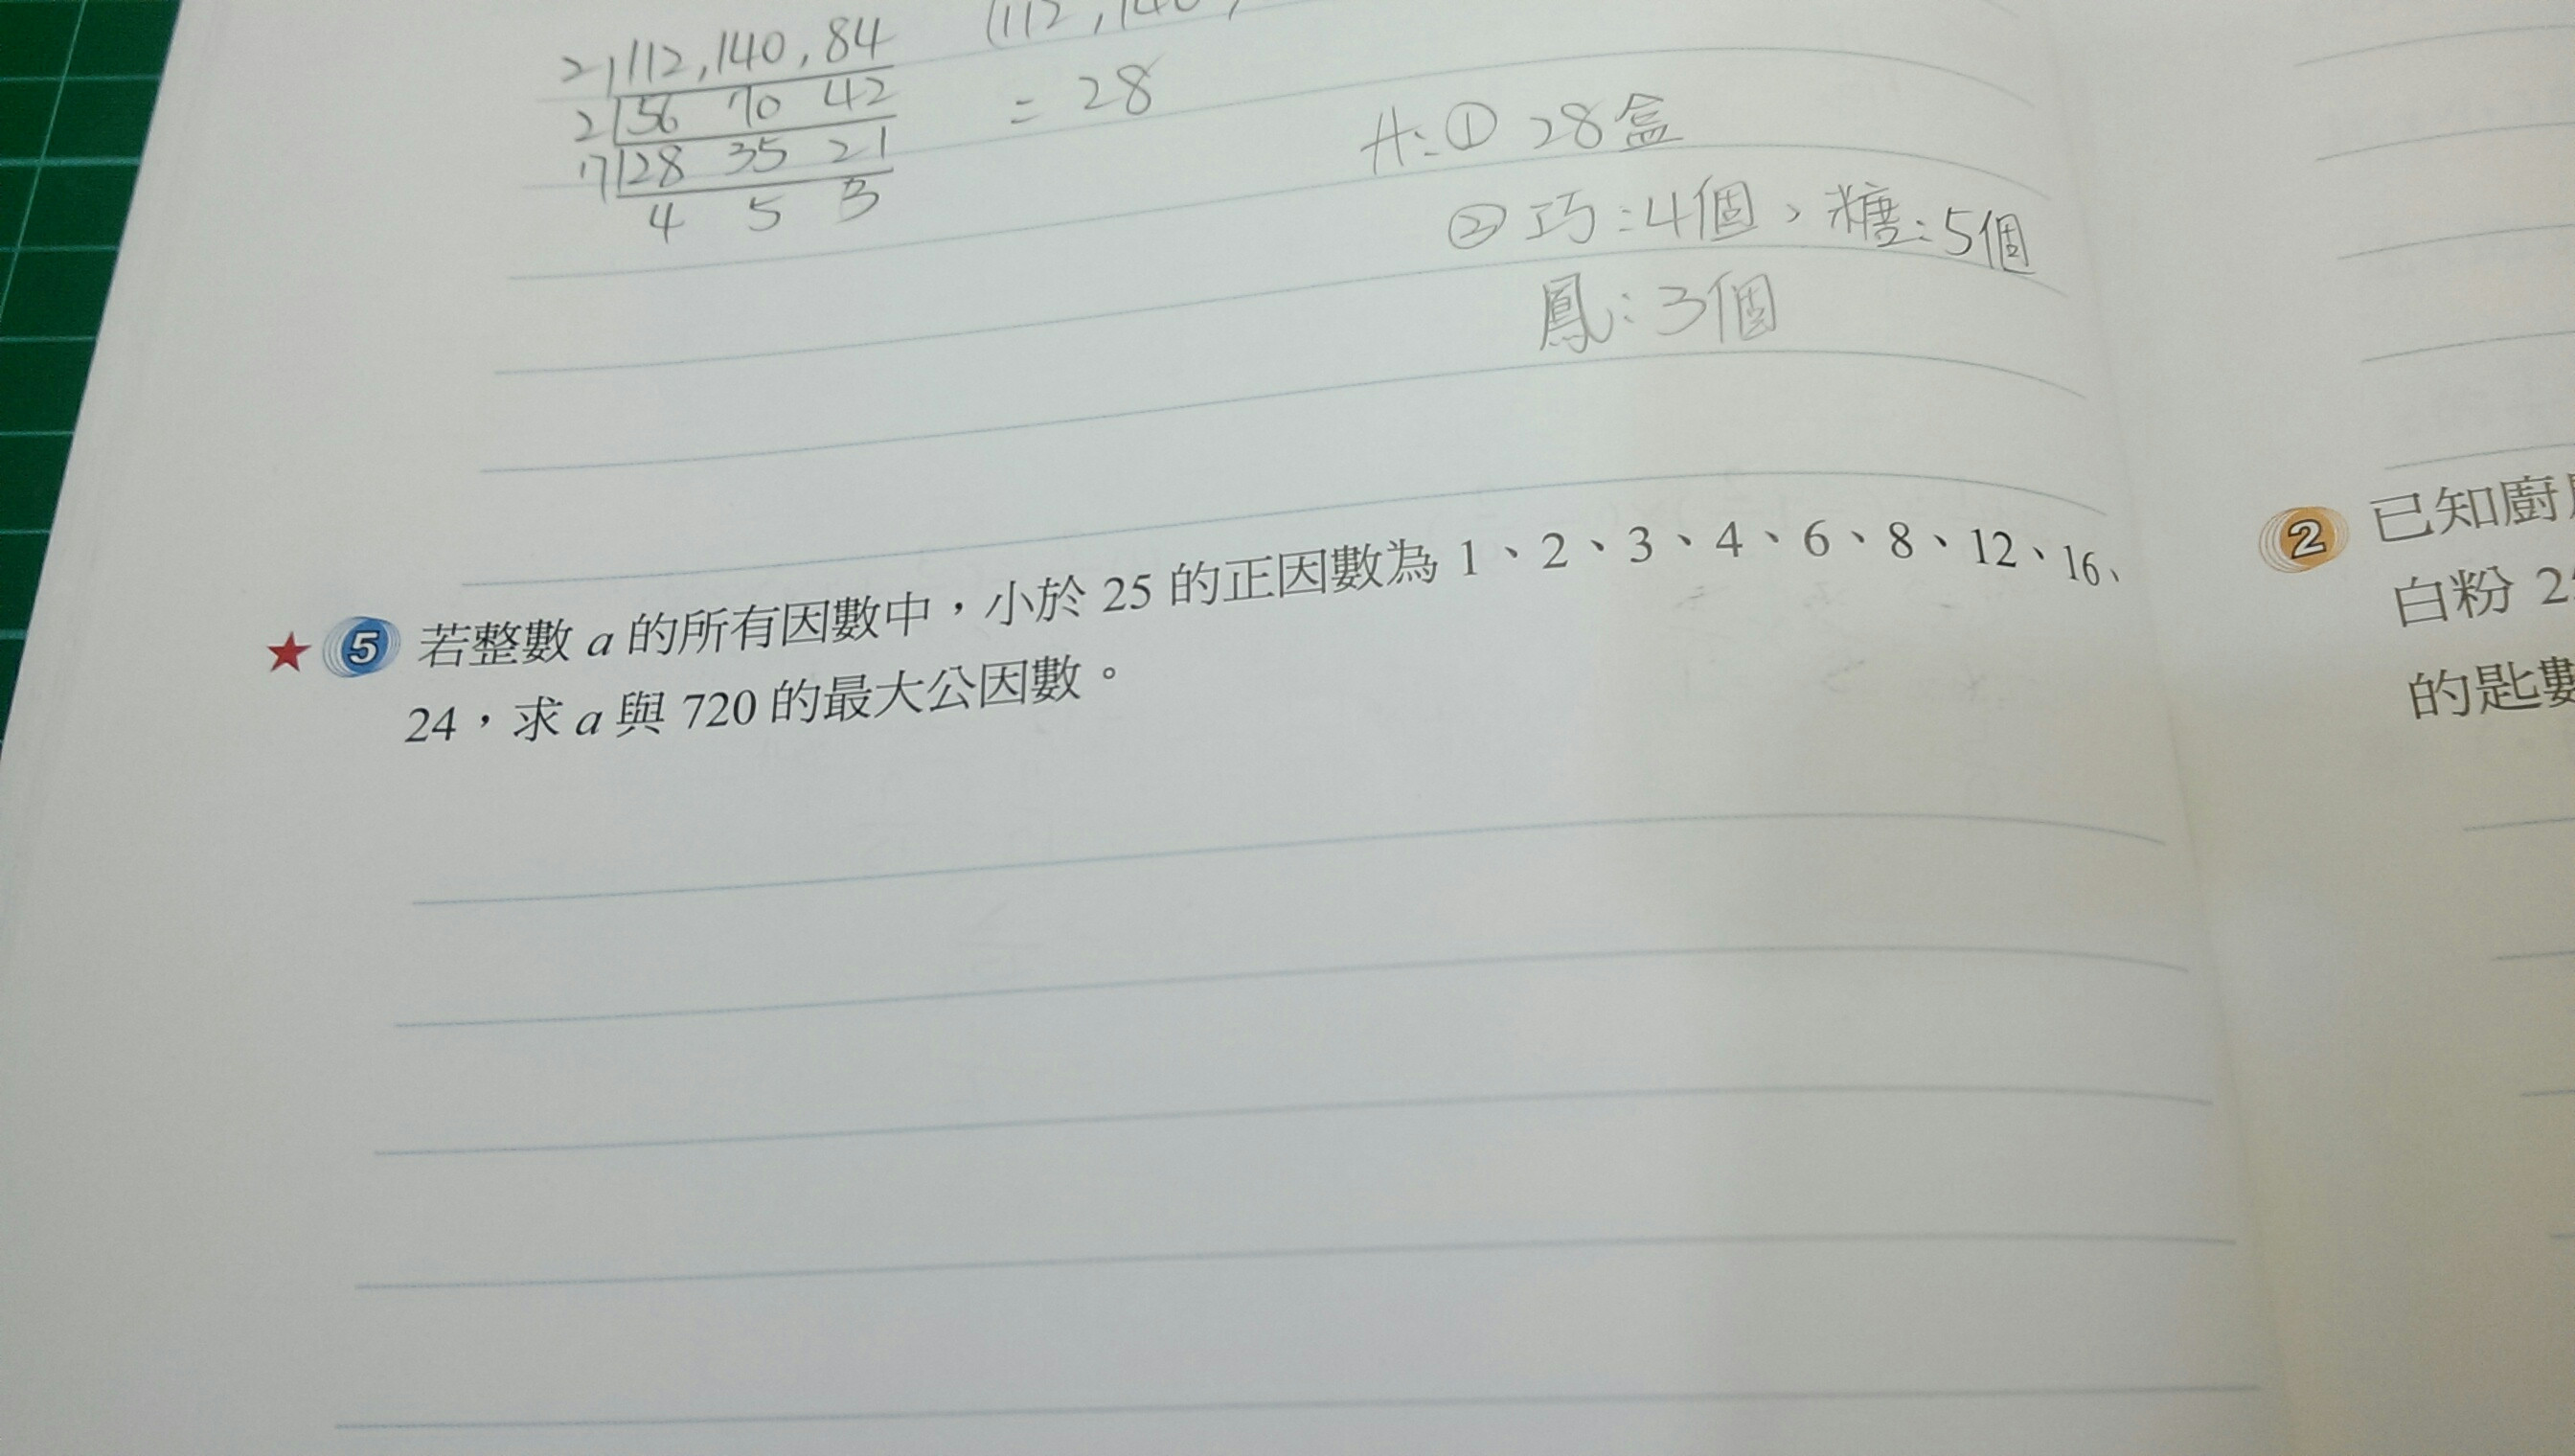 2 112 , 140 , 84
(112 , 140
2 56 70 42
= 28
7 28 35 21
4 5 3
A: ① 28盒
② 巧:4個、糖:5個
鳳:3個
★ 5 若整數 a 的所有因數中,小於 25 的正因數為 1、2、3、4、6、8、12、16、
24,求 a 與 720 的最大公因數。
2 已知廚
白粉 2
的匙數